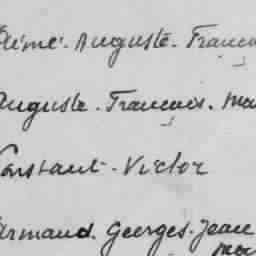 Aimé. Auguste. Franco
Auguste. Francois. Ma
Constant. Victor
Armand. Georges. Jean
Ma